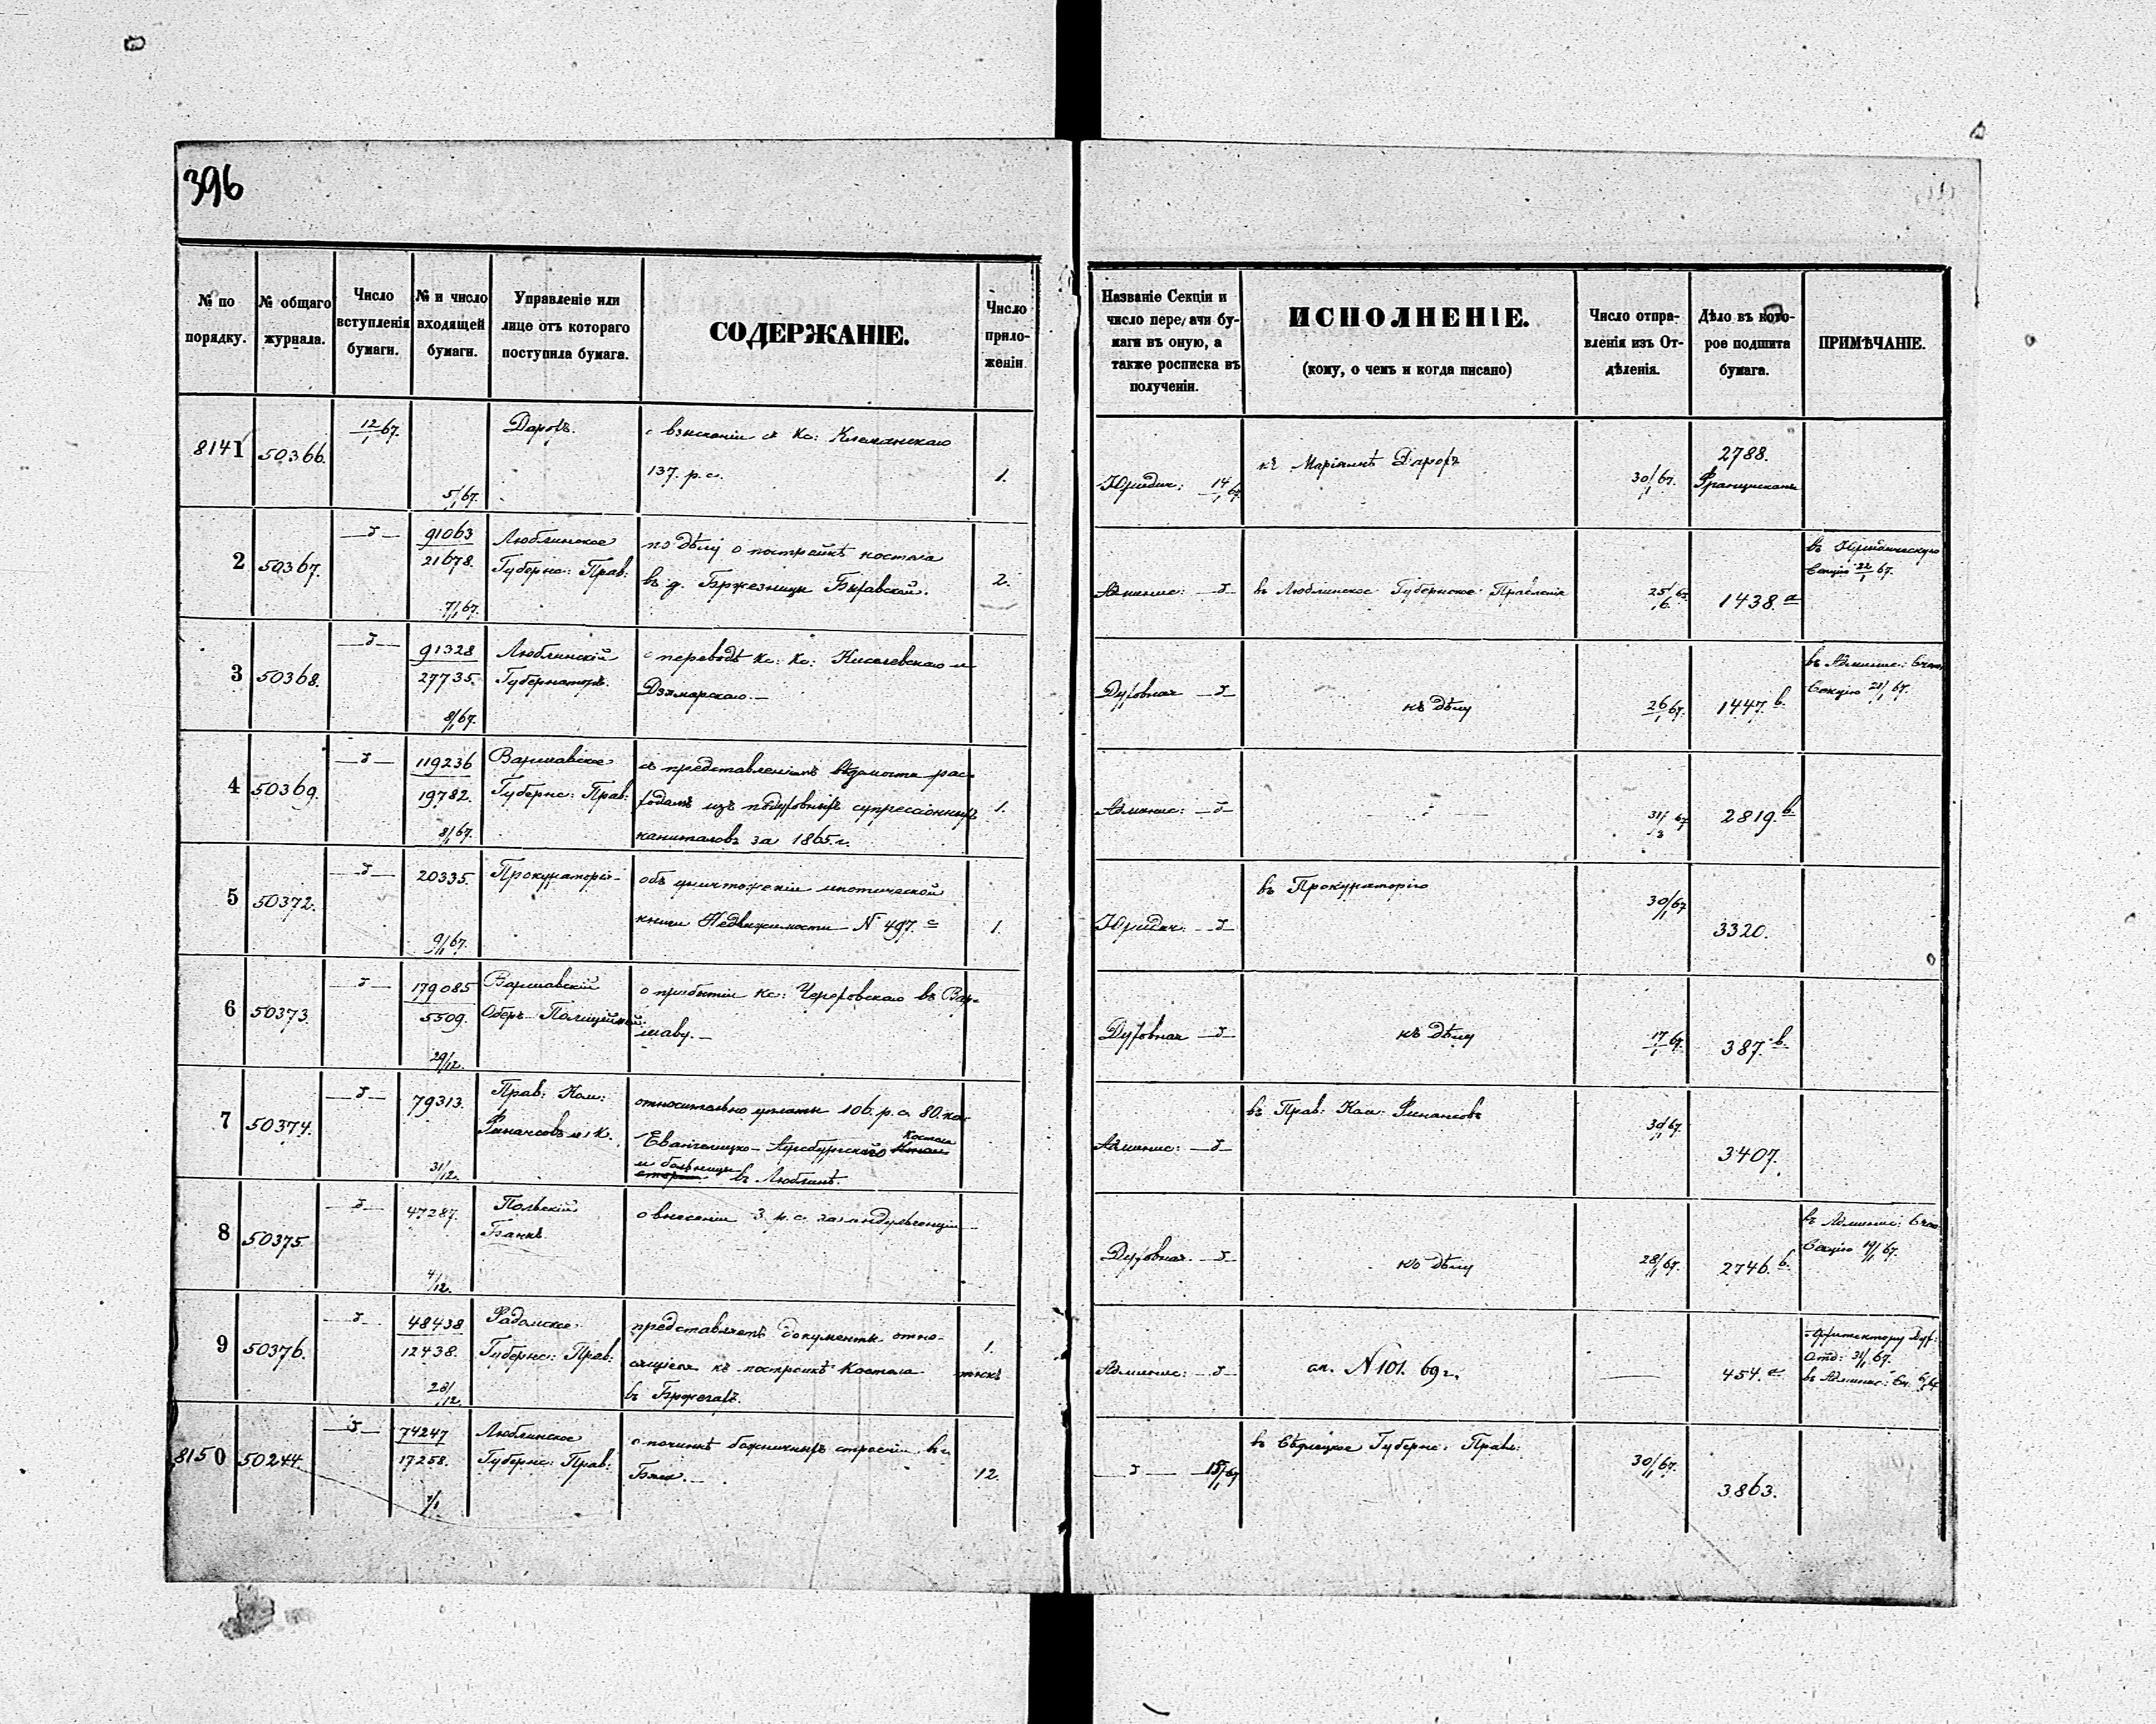 396
№ по порядку.
№ общаго журнала.
Число вступленія бумаги.
№ и число входящей бумаги.
Управленіе или лице отъ котораго поступила бумага.
СОДЕРЖАНІЕ.
Число прило-женій
Названіе Секціи и число пере, ачи бу-маги въ оную, а также росписка въ полученіи.
ИСПОЛНЕНІЕ.
(кому, о чемъ и когда писано)
Число отпра-вленія изъ От-дѣленія.
Дѣло въ кото-рое подшита бумага.
ПРИМѢЧАНІЕ.
8141
50366.
12/1 67.
5/1 67.
о взысканіи съ Кс:
137. р. с.
1.
Юридич: 14/1 67.
къ Маріяннѣ
30/1 67.
2788.
2
50367.
91063
21678.
7/1 67.
Люблинское
Губернс: Прав:
по дѣлу о постройкѣ костела
въ д. Бржезницы Быхавской.
2.
Админис:
въ Люблинское Губернское Правленіе
25/6 67.
1438. a
въ Юридическую
Секцію 22/1 67.
3
50368.
91328
27735.
8/1 67.
Люблинскій
Губернаторъ.
о переводѣ Кс: Кс: Киселевскаго и
Духовная
къ дѣлу
26/1 67.
1447. b.
въ Админис:
Секцію 21/1 67.
4
50369.
119236
19782.
8/1 67.
Варшавское
Губернс: Прав:
съ представленіемъ вѣдомости рас-
ходамъ изъ супрессіонныхъ
капиталовъ за 1865. г.
1.
Админис:
31/3 67
2819. b
5
50372.
20335.
9/1 67.
Прокураторія
объ уничтоженіи ипотической
книги Недвижимости N 497. c
1.
Юридич:
въ Прокураторію
30/1 67
3320.
6
50373.
179085
5509.
29/12.
Варшавскій
Оберъ-Полицейм
о прибытіи Кс: въ Вар-
шаву.
Духовная
къ дѣлу
17/1 67.
387. b.
7
50374.
79313.
31/12.
Прав: Ком:
Финансовъ и К.
относительно уплаты 106. р. с. 80. коп
Евангелицко-Аугсбургскаго Костела
и больницы въ Люблинѣ.
Админис:
въ Прав: Ком: Финансовъ
30/1 67.
3407.
8
50375.
47287.
4/12.
Польскій
Банкъ.
о внесеніи 3 р. с. за индульгенціи
Духовная.
къ дѣлу
28/1 67.
2746. b.
въ Админис:
Секцію 19/1 67.
9
50376.
48438
12438.
28/12.
Радомское
Губернс: Прав:
представляетъ документы отно-
сящіеся къ постройкѣ Костела
въ
1.
Админис:
N 101. 69 г.
454. a
Архитектору Дух:
Отд: 31/1 67.
въ Админис:
8150
50244.
74247
17258.
Люблинское
Губернс: Прав:
о починкѣ божничныхъ строеній въ г.
12.
15/1 67
въ Сѣдлецкое Губернс: Правл:
30/1 67.
3863.